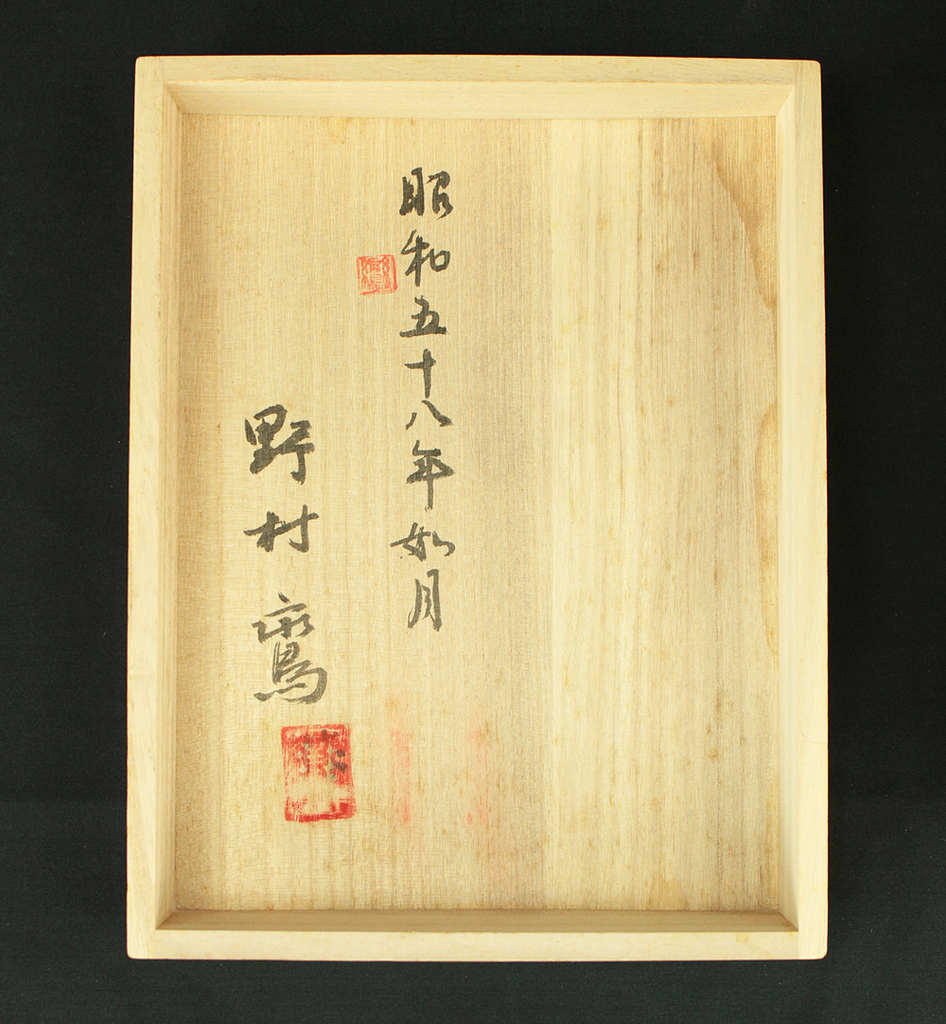 昭和五十八年如月
野村